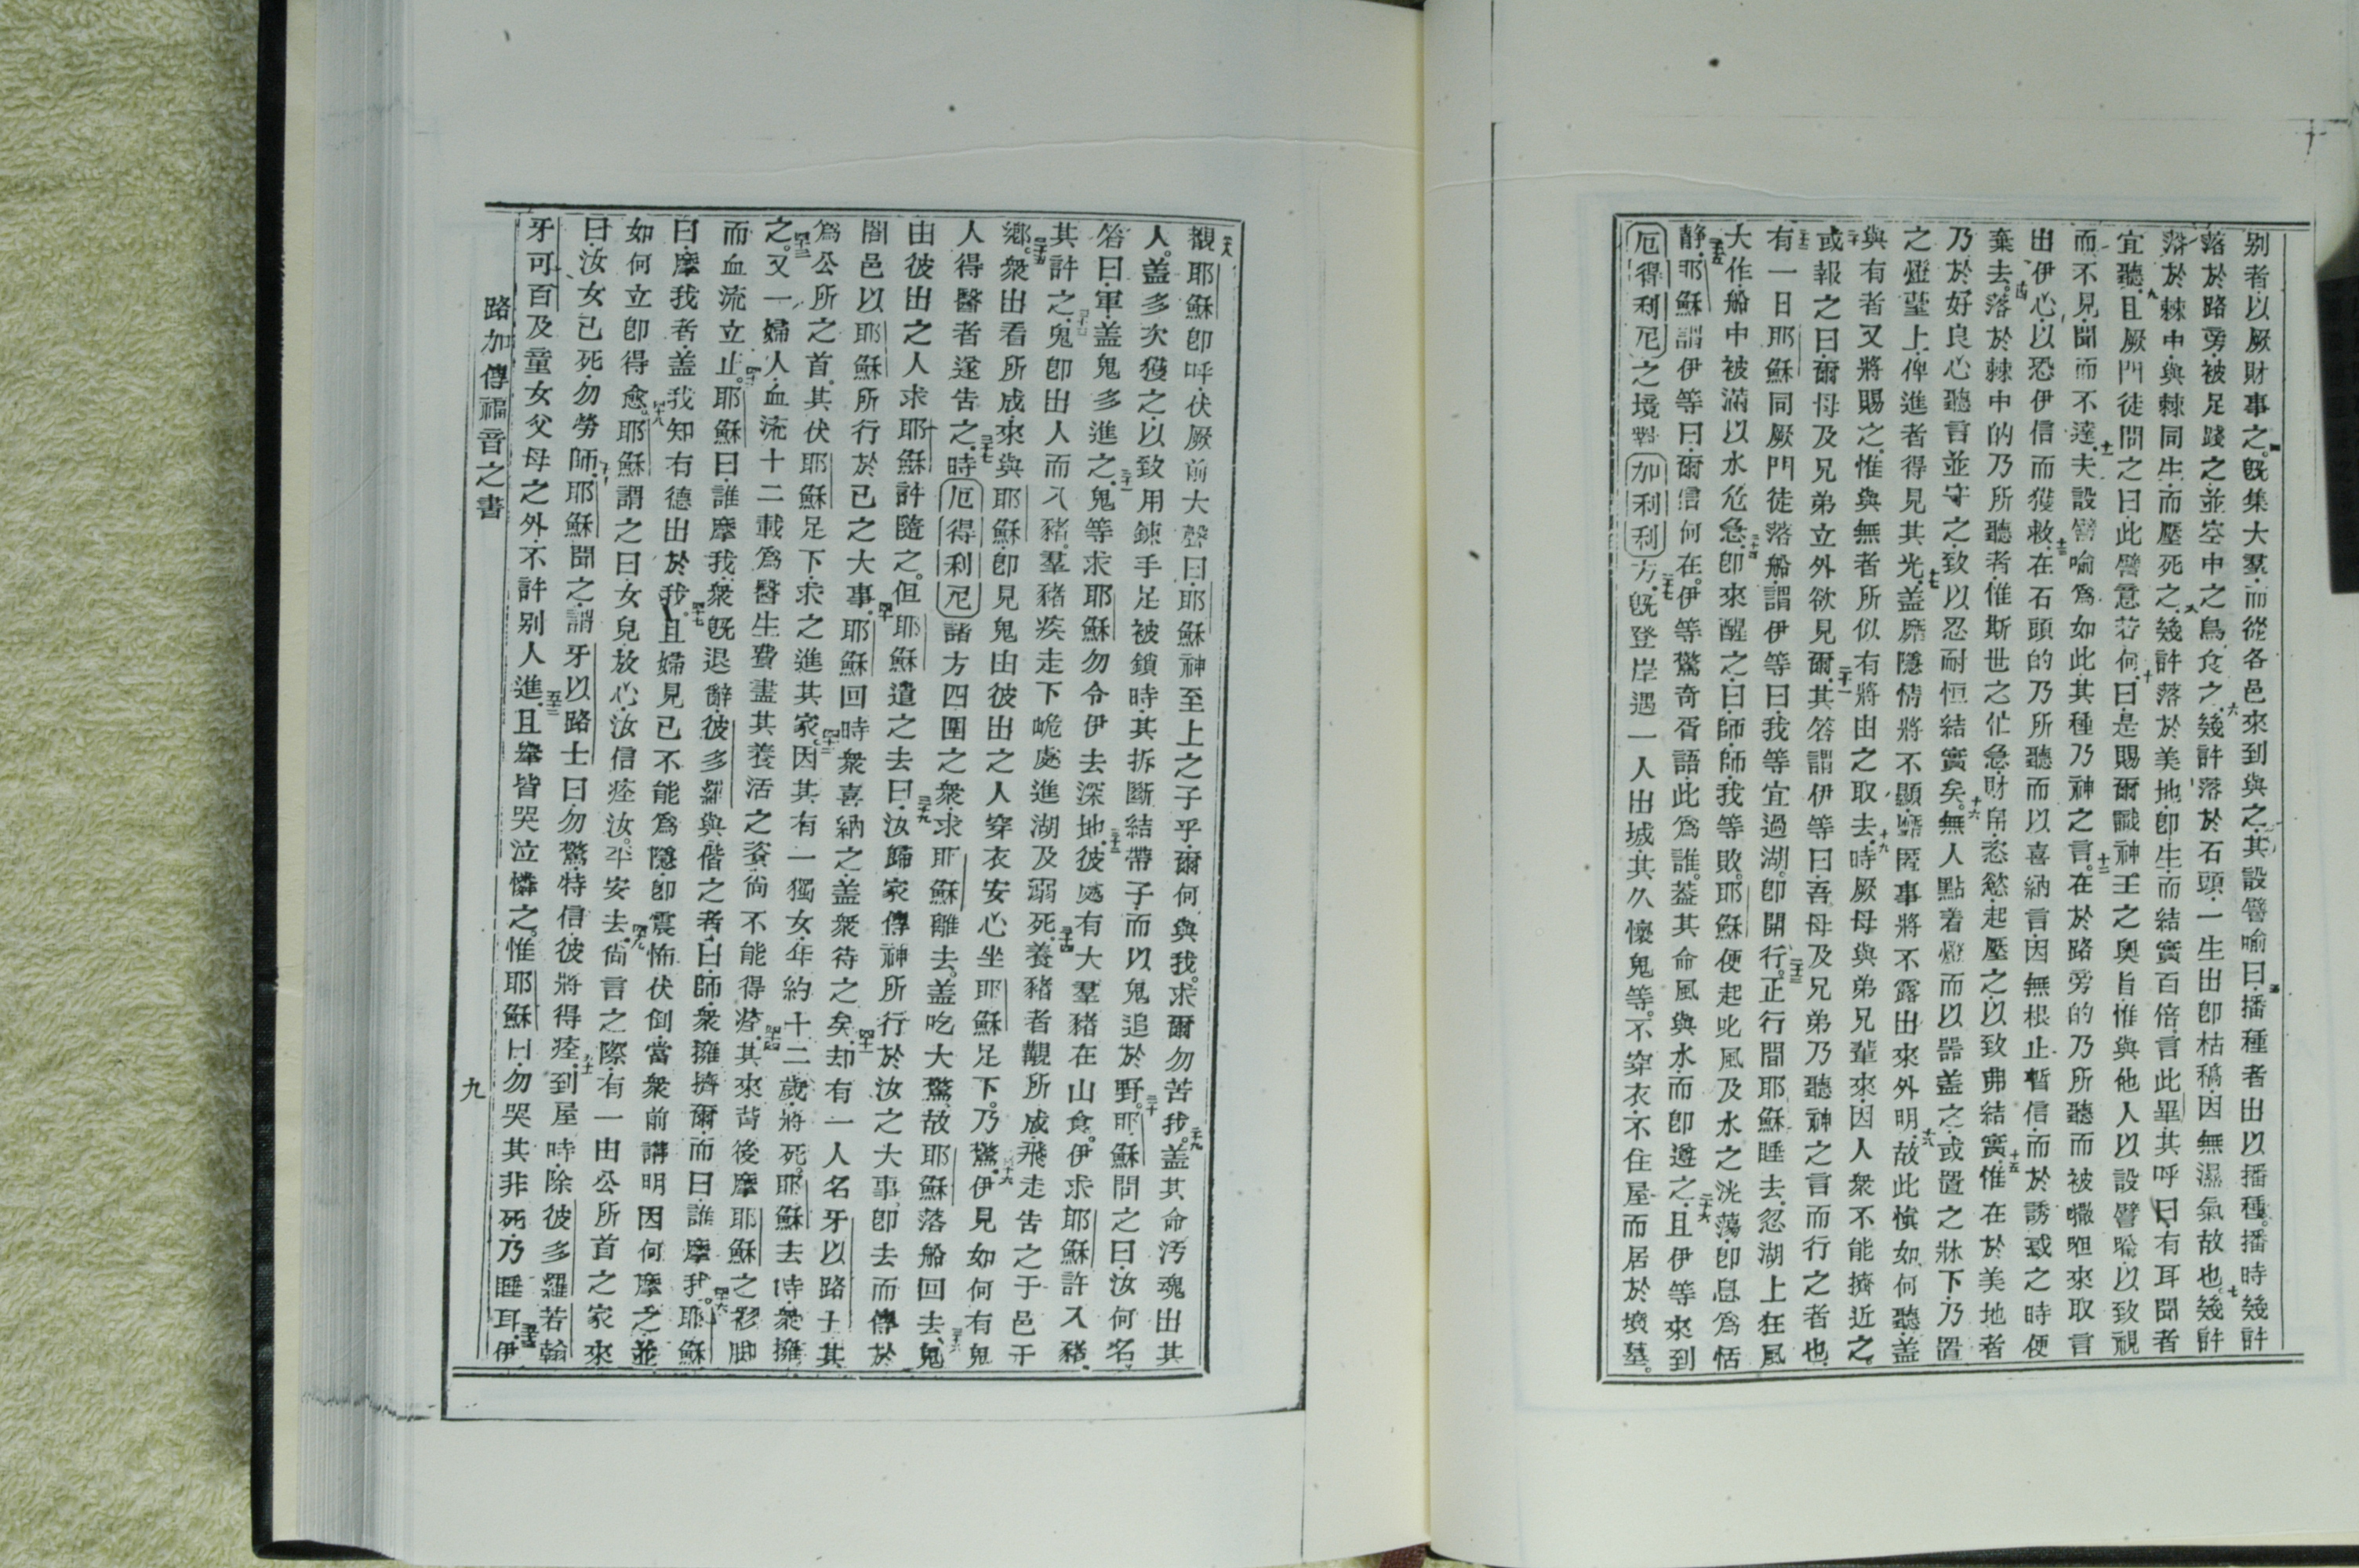 别者以厥財事之。旣集大羣而從各邑來到與之其設譬喻曰播種者出以播種。播時幾許
落於路旁被足踐之並空中之鳥食之幾許落於石頭一生出卽枯稿因無濕氣故也。幾許
落於棘中與棘同生而壓死之幾許落於美地卽生而結實百倍言此畢其呼曰有耳聞者
宜聽。且厥門徒問之曰此譬意若何曰是賜爾識神王之奧旨惟與他人以設譬喻以致視
而不見聞而不達。夫設譬喻爲如此其種乃神之言。在於路旁的乃所聽而被㘔呾來取言
出伊心以恐伊信而獲救。在石頭的乃所聽而以喜納言因無根止暫信而於誘惑之時便
棄去。落於棘中的乃所聽者惟斯世之忙急財帛恣慾起壓之以致弗結實惟在於美地者
乃於好良心聽言並守之致以忍耐恒結實矣。無人點着燈而以器盖之或置之牀下乃置
之燈䑓上俾進者得見其光盖靡隱情將不顯靡匿事將不露出來外明故此愼如何聽盖
與有者又將賜之惟與無者所似有將由之取去。時厥母與弟兄輩來因人衆不能擠近之。
或報之曰爾母及兄弟立外欲見爾其答謂伊等曰吾母及兄弟乃聽神之言而行之者也
有一日耶穌同厥門徒落船謂伊等曰我等宜過湖。卽開行。正行間耶穌睡去忽湖上狂風
大作船中被滿以水危急卽來醒之曰師師我等敗。耶穌便起叱風及水之洸蕩卽息爲恬
靜耶穌謂伊等曰爾信何在。伊等驚奇胥語此爲誰。葢其命風與水而卽遵之。且伊等來到
厄得利尼之境對加利利方。旣登岸遇一人出城其久懷鬼等。不穿衣不住屋而居於墳墓。
覩耶穌卽呼伏厥前大聲曰耶穌神至上之子乎爾何與我。求爾勿苦我。盖其命汚魂出其
人。盖多次獲之以致用鍊手足被鎖時其拆斷結帶子而以鬼追於野。耶穌問之曰汝何名
答曰軍盖鬼多進之。鬼等求耶穌勿令伊去深地。彼處有大羣豬在山食。伊求耶穌許入豬
其許之。鬼卽出人而入豬。羣豬疾走下峗處進湖及溺死。養豬者觀所成飛走告之于邑于
鄉。衆出看所成來與耶穌卽見鬼由彼出之人穿衣安心坐耶穌足下。乃驚。伊見如何有鬼
人得醫者遂告之。時厄得利尼諸方四圍之衆求耶穌離去。盖吃大驚故耶穌落船回去鬼
由彼出之人求耶穌許隨之。但耶穌遣之去曰汝歸家傳神所行於汝之大事卽去而傳於
闔邑以耶穌所行於已之大事。耶穌回時衆喜納之盖衆待之矣。却有一人名牙以路士其
爲公所之首。其伏耶穌足下求之進其家因其有一獨女年約十二歲將死。耶穌去時衆擁
之。又一婦人血流十二載爲醫生費盡其養活之資尙不能得痊其來背後摩耶穌之衫脚
而血流立止。耶穌曰誰摩我衆旣退辭彼多羅與偕之者曰師衆擁擠爾而曰誰摩我。耶穌
曰摩我者盖我知有德出於我。且婦見已不能爲隱卽震怖伏倒當衆前講明因何摩之並
如何立卽得愈。耶穌謂之曰女兒放心汝信痊汝。平安去。尙言之際有一由公所首之家來
曰汝女已死勿勞師。耶穌聞之謂牙以路士曰勿驚特信彼將得痊。到屋時除彼多羅若翰
牙可百及童女父母之外不許别人進。且羣皆哭泣憐之。惟耶穌曰勿哭其非死乃睡耳伊
路加傳福音之書
九